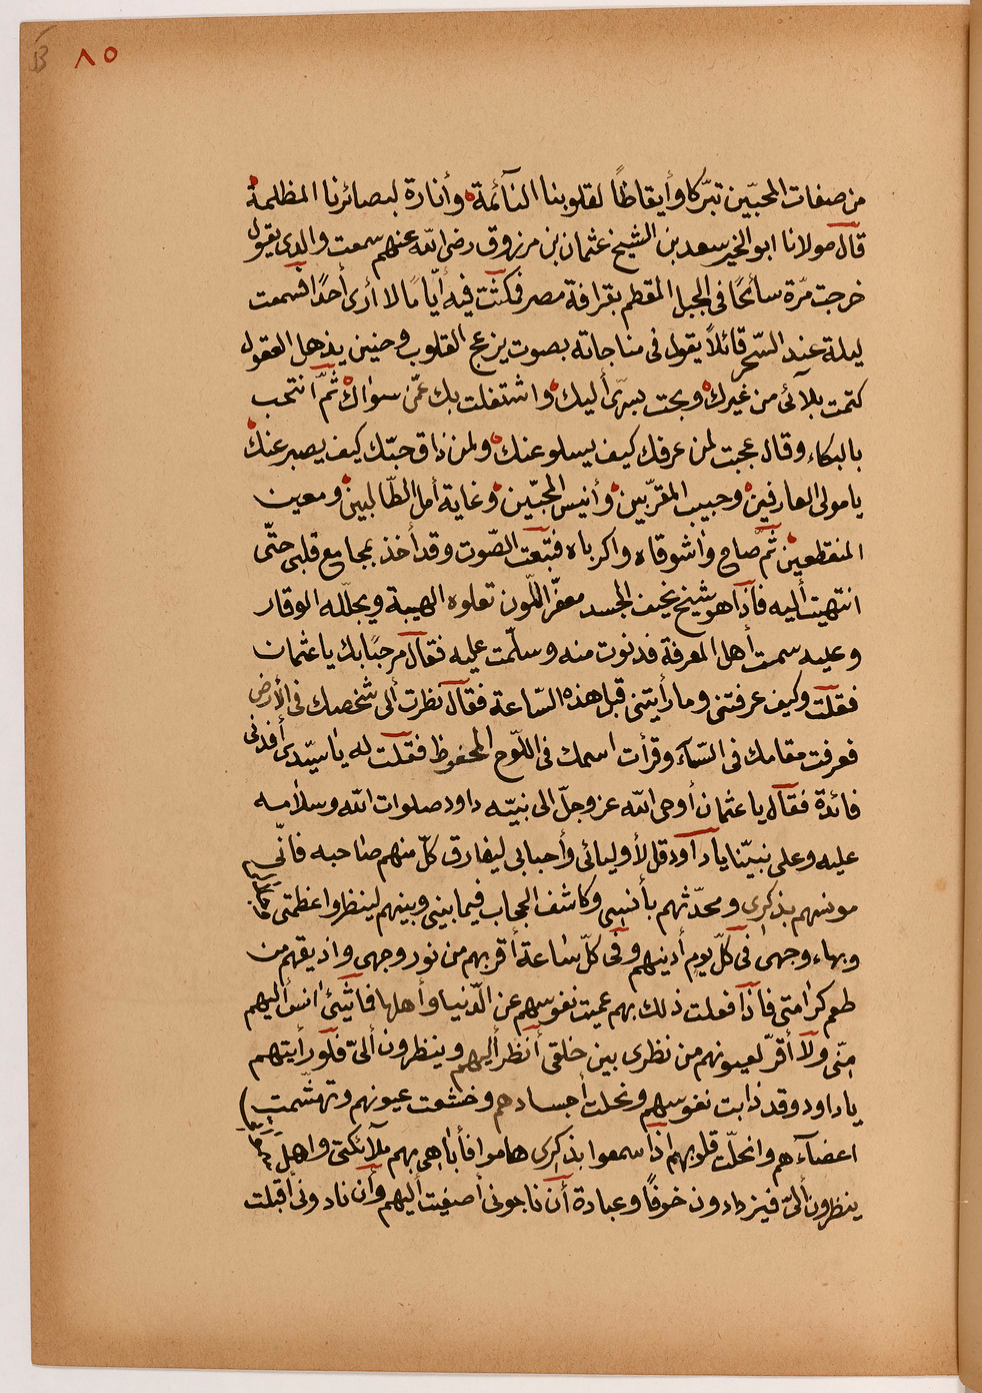 ٨٥
من صفات المحبّين تبرّكا وأيقاظًا لقلوبنا النآئمة وأنارة لبصائرنا المظلمة
قال مولانا ابو الخير سعد بن الشيخ عثمان بن مرزوق رضى الله عنهم سمعت والدى يقول
خرجت مرّة سائحًا فى الجبل المقطم بقرافة مصر فمكثت فيه أيّامًا لا أرى أحدًا فسمعت
ليلة عند السّحر قائلاً يقول فى مناجاته بصوت يزعج القلوب وحنين يذهل العقول
كتمت بلآئى من غيرك وبحت بسرّى أليك واشتغلت بك عمّن سواك ثمّ انتحب
بالبكاء وقال عجبت لمن عرفك كيف يسلو عنك ولمن ذاق حبّك كيف يصبر عنك
يا مولى العارفين وحبيب المقرّبين وأنيس المحبّين وغاية أمل الطّالبين ومعين
المنقطعين ثمّ صاح واشوقاه واكرباه فتبعت الصّوت وقد أخذ بمجامع قلبى حتّى
انتهيت أليه فأذا هو شيخ نحيف الجسد مصفرّ اللّون تعلوه الهيبة ويجلّله الوقار
وعليه سمت أهل المعرفة فدنوت منه وسلّمت عليه فقال مرحبًا بك يا عثمان
فقلت وكيف عرفتنى وما رأيتنى قبل هذه السّاعة فقال نظرت ألى شخصك فى الأرض
فعرفت مقامك فى السّمآء وقرأت اسمك فى اللّوح المحفوظ فقلت له يا سيّدى أفدنى
فائدة فقال يا عثمان أوحى الله عز وجلّ الى نبيّه داود صلوات الله وسلامه
عليه وعلى نبيّنا يا داود قل لأوليائى وأحبابى ليفارق كلّ منهم صاحبه فأنّى
مونسهم بذكرى ومحدّثهم بأنسى وكاشف الحجاب فيما بينى وبينهم لينظروا عظمتى
وبهاء وجهى فى كلّ يوم أدنيهم وفى كلّ ساعة أقربهم من نور وجهى واذيقهم من
طعم كرامتى فاذا فعلت ذلك بهم عميت نفوسهم عن الدّنيا وأهلها فما شيئ انس أليهم
منّى ولا أقرّ لعيونهم من نظرى بين خلقى أنظر أليهم وينظرون ألىّ فلو رأيتهم
يا داود وقد ذابت نفوسهم ونحلت أجسادهم وخشعت عيونهم وتهشّمت
اعضآءهم وانحلّت قلوبهم اذا سمعوا بذكرى هاموا فأباهى بهم ملآئكتى واهل
ينظرون ألىّ فيزدادون خوفًا وعبادة أن ناجونى أصغيت أليهم وأن نادونى أقبلت